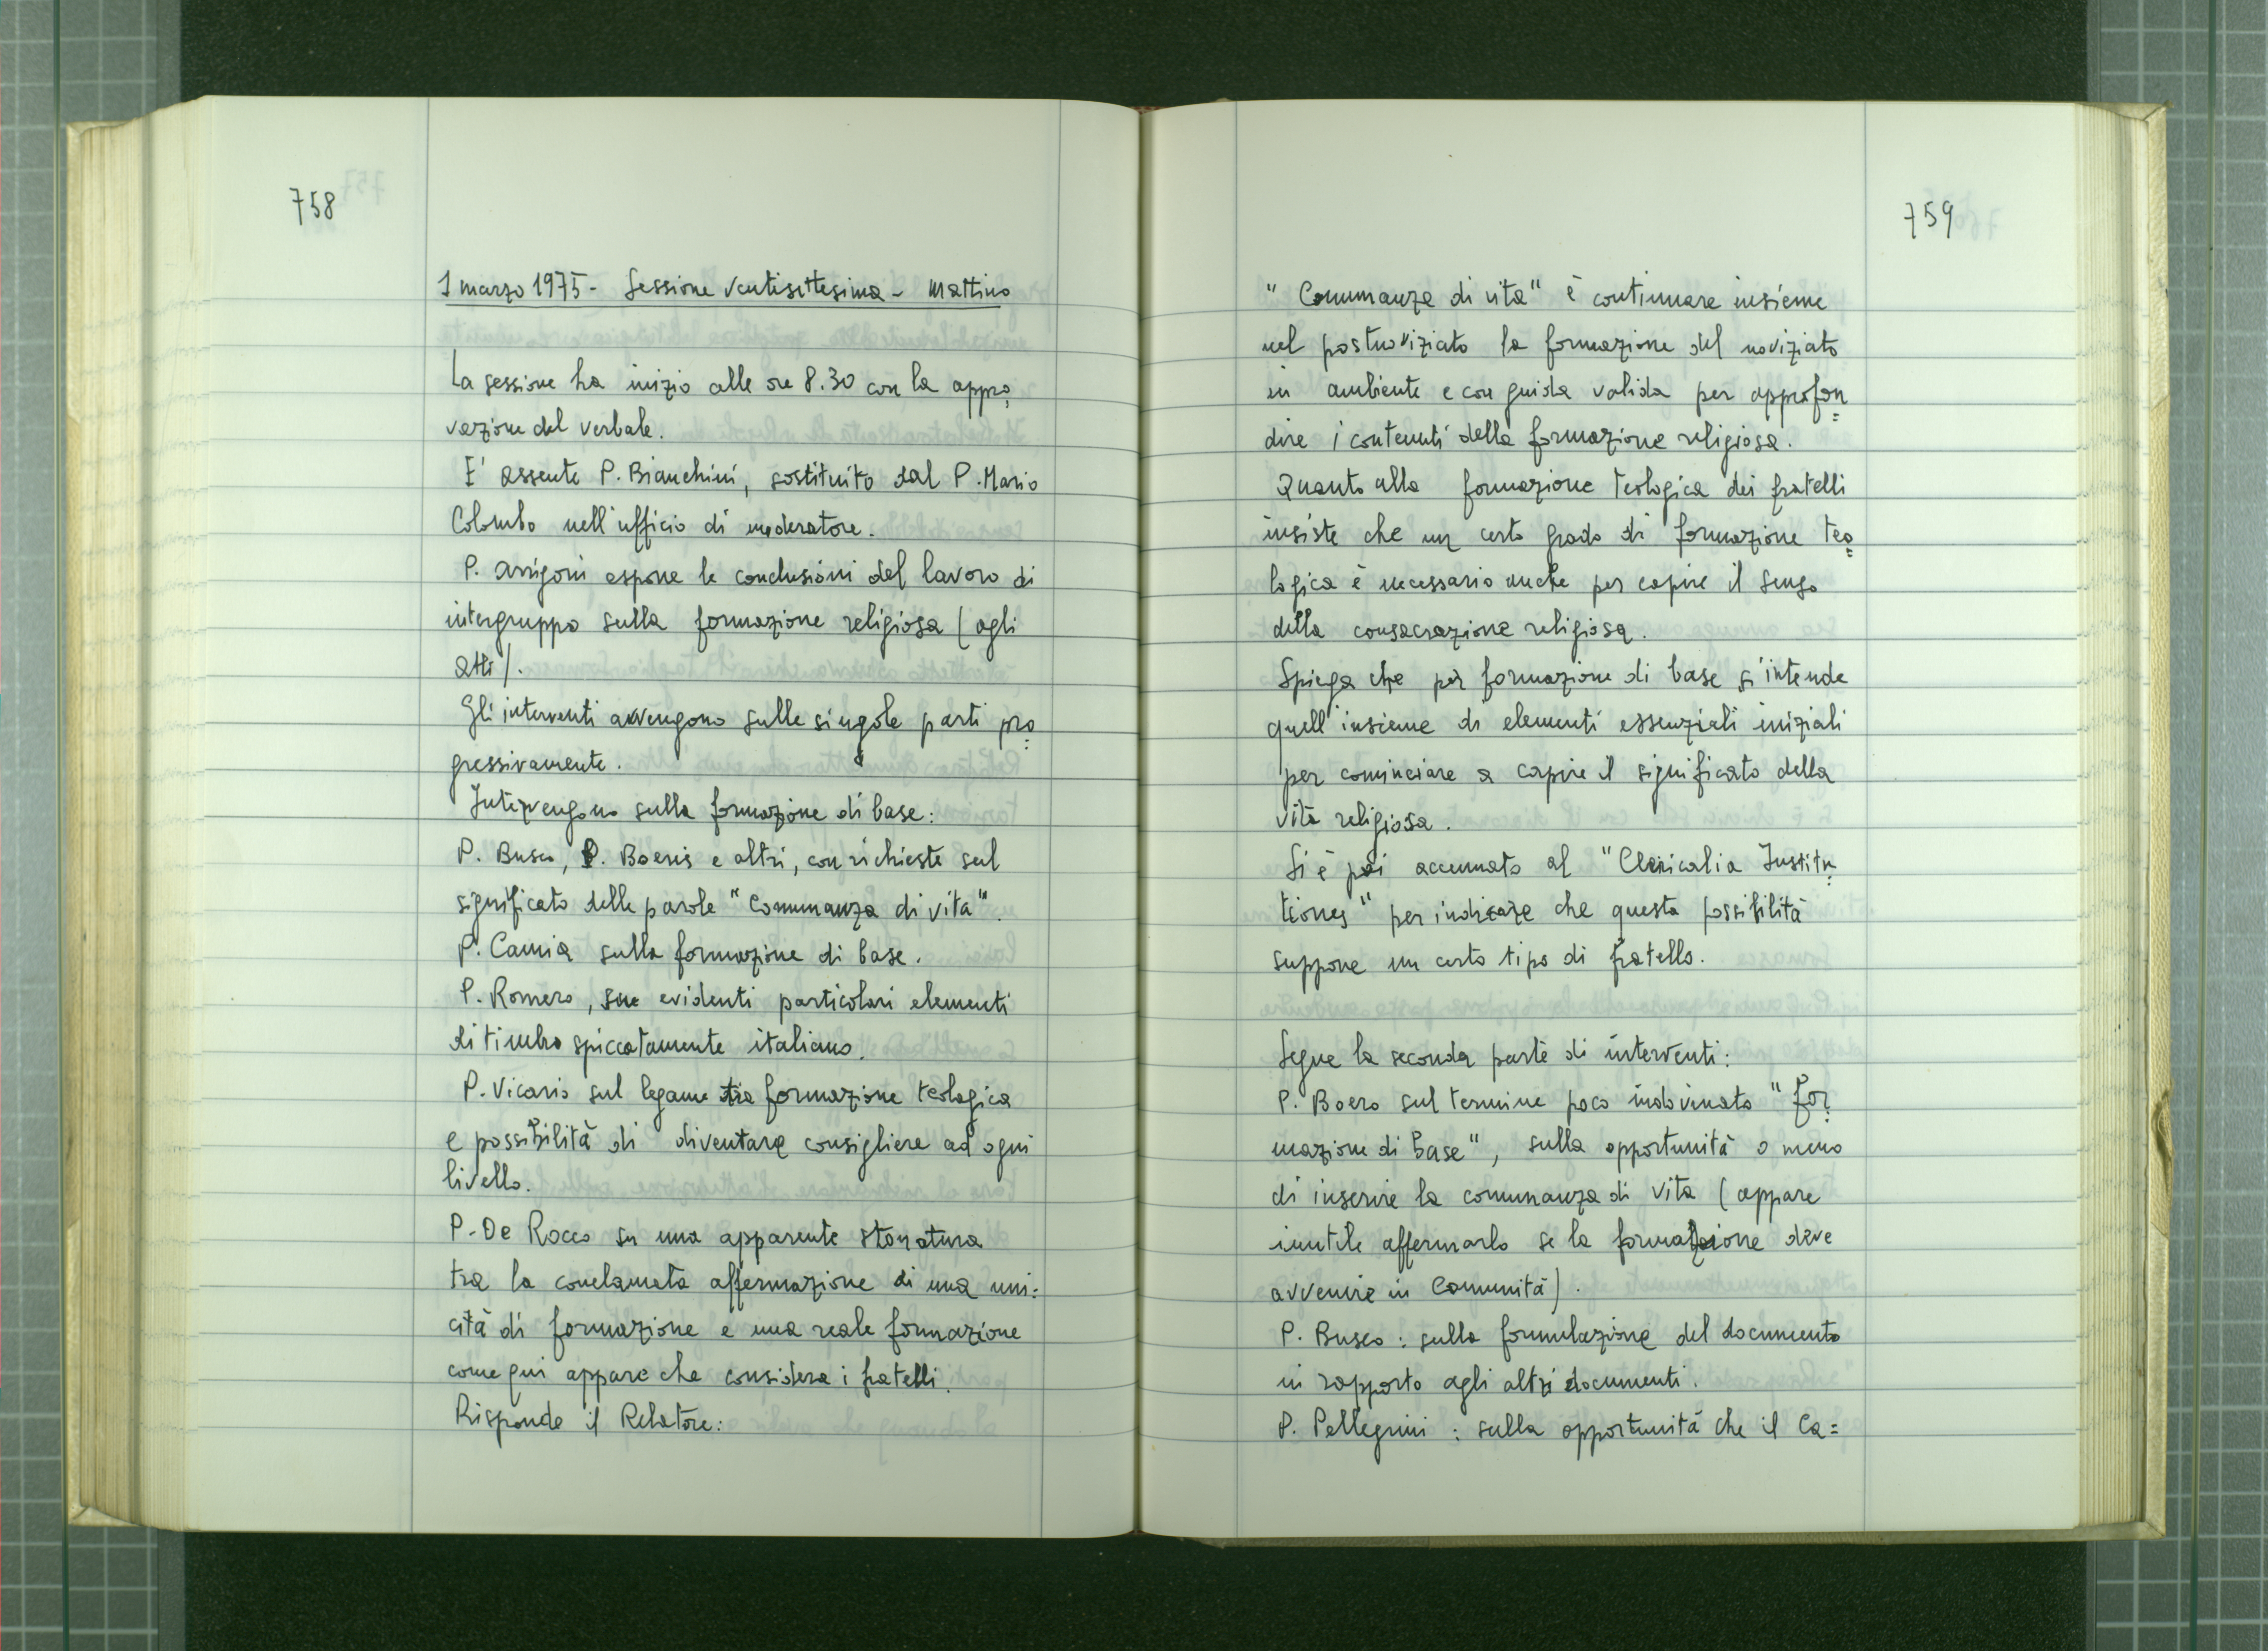 758
1 marzo 1975 - Sessione ventisettesima - Mattino
La sessione ha inizio alle ore 8.30 con la appro=
vazione del verbale.
E' assente P. Bianchini, sostituito dal P. Mario
Colombo nell'ufficio di moderatore.
P. Arrigoni espone le conclusioni del lavoro di
intergruppo sulla formazione religiosa (agli
atti).
Gli interventi avvengono sulle singole parti pro=
gressivamente.
Intervengono sulla formazione di base:
P. Busco, P. Boeris e altri, con richieste sul
significato delle parole "Comunanza di vita".
P. Camia sulla formazione di base.
P. Romero, su evidenti particolari elementi
di timbro spiccatamente italiano.
P. Vicario sul legame tra formazione teologica
e possibilità di diventare consigliere ad ogni
livello.
P. De Rocco su una apparente stonatura
tra la conclamata affermazione di una uni=
cità di formazione e una reale formazione
come qui appare che considera i fratelli.
Risponde il Relatore:
759
"Comunanza di vita" è continuare insieme
nel postnoviziato la formazione del noviziato
in ambiente e con guida valida per approfon=
dire i contenuti della formazione religiosa.
Quanto alla formazione teologica dei fratelli
insiste che un certo grado di formazione teo=
logica è necessario anche per capire il senso
della consacrazione religiosa.
Spiega che per formazione di base s'intende
quell'insieme di elementi essenziali iniziali
per cominciare a capire il significato della
vita religiosa.
Si è poi accennato al "Clericalia Institu=
tiones" per indicare che questa possibilità
suppone un certo tipo di fratello.
Segue la seconda parte di interventi:
P. Boero sul termine poco indovinato "for=
mazione di base", sulla opportunità o meno
di inserire la comunanza di vita (appare
inutile affermarlo se la formazione deve
avvenire in Comunità).
P. Busco: sulla formulazione del documento
in rapporto agli altri documenti.
P. Pellegrini: sulla opportunità che il Ca=